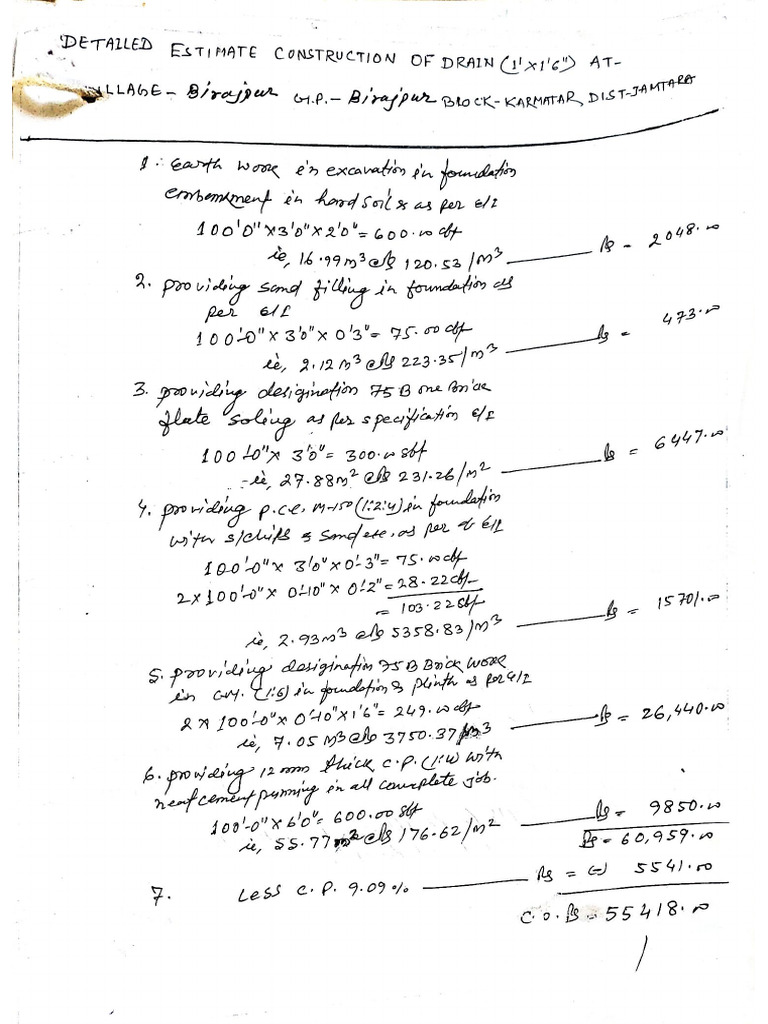 DETAILED ESTIMATE CONSTRUCTION OF DRAIN (1'X1'6") AT-
VILLAGE - Birajpur G.P. - Birajpur BLOCK-KARMATAR, DIST-JAMTARA
1. Earth work in excavation in foundation
embenkment in hard soil & as per E/I
100'0"X3'0"X2'0"= 600.00 cft
ie, 16.99 m³ @ Rs 120.53/m³ Rs - 2048.00
2. providing sand filling in foundation as
per E/I
100'-0" X 3'0" X 0'3" = 75.00 cft
ie, 2.12 m³ @ Rs 223.35/m³ Rs = 473.00
3. providing desigination 75 B one brick
flate soling as per specification E/I
100'-0"X 3'0" = 300.00 sft
ie, 27.88m² @ Rs 231.26/m² Rs = 6447.00
4. providing P.C.C. M-150 (1:2:4) in foundation
with s/chips & sand etc. as per E/I
100'-0" X 3'0" X 0'-3" = 75.00 cft
2 X 100'-0" X 0'-10" X 0'-2" = 28.22 cft
= 103.22 cft
ie, 2.93m³ @ Rs 5358.83/m³ Rs = 15701.00
5. providing desigination 75 B Brick work
in C.M. (1:6) in foundation & plinth as per E/I
2 X 100'-0"X 0'-10"X1'6"= 249.00 cft
ie, 7.05 M³ @ Rs 3750.37/m3 Rs = 26,440.00
6. providing 12 mm thick C.P. (1:4) with
neat cement punning in all complete job.
100'-0" X 6'0" = 600.00 sft
ie, 55.77 m² @ Rs 176.62/m² Rs = 9850.00
Rs = 60,959.00
7. Less C.P. 9.09% Rs = (-) 5541.00
C.O. Rs = 55418.00